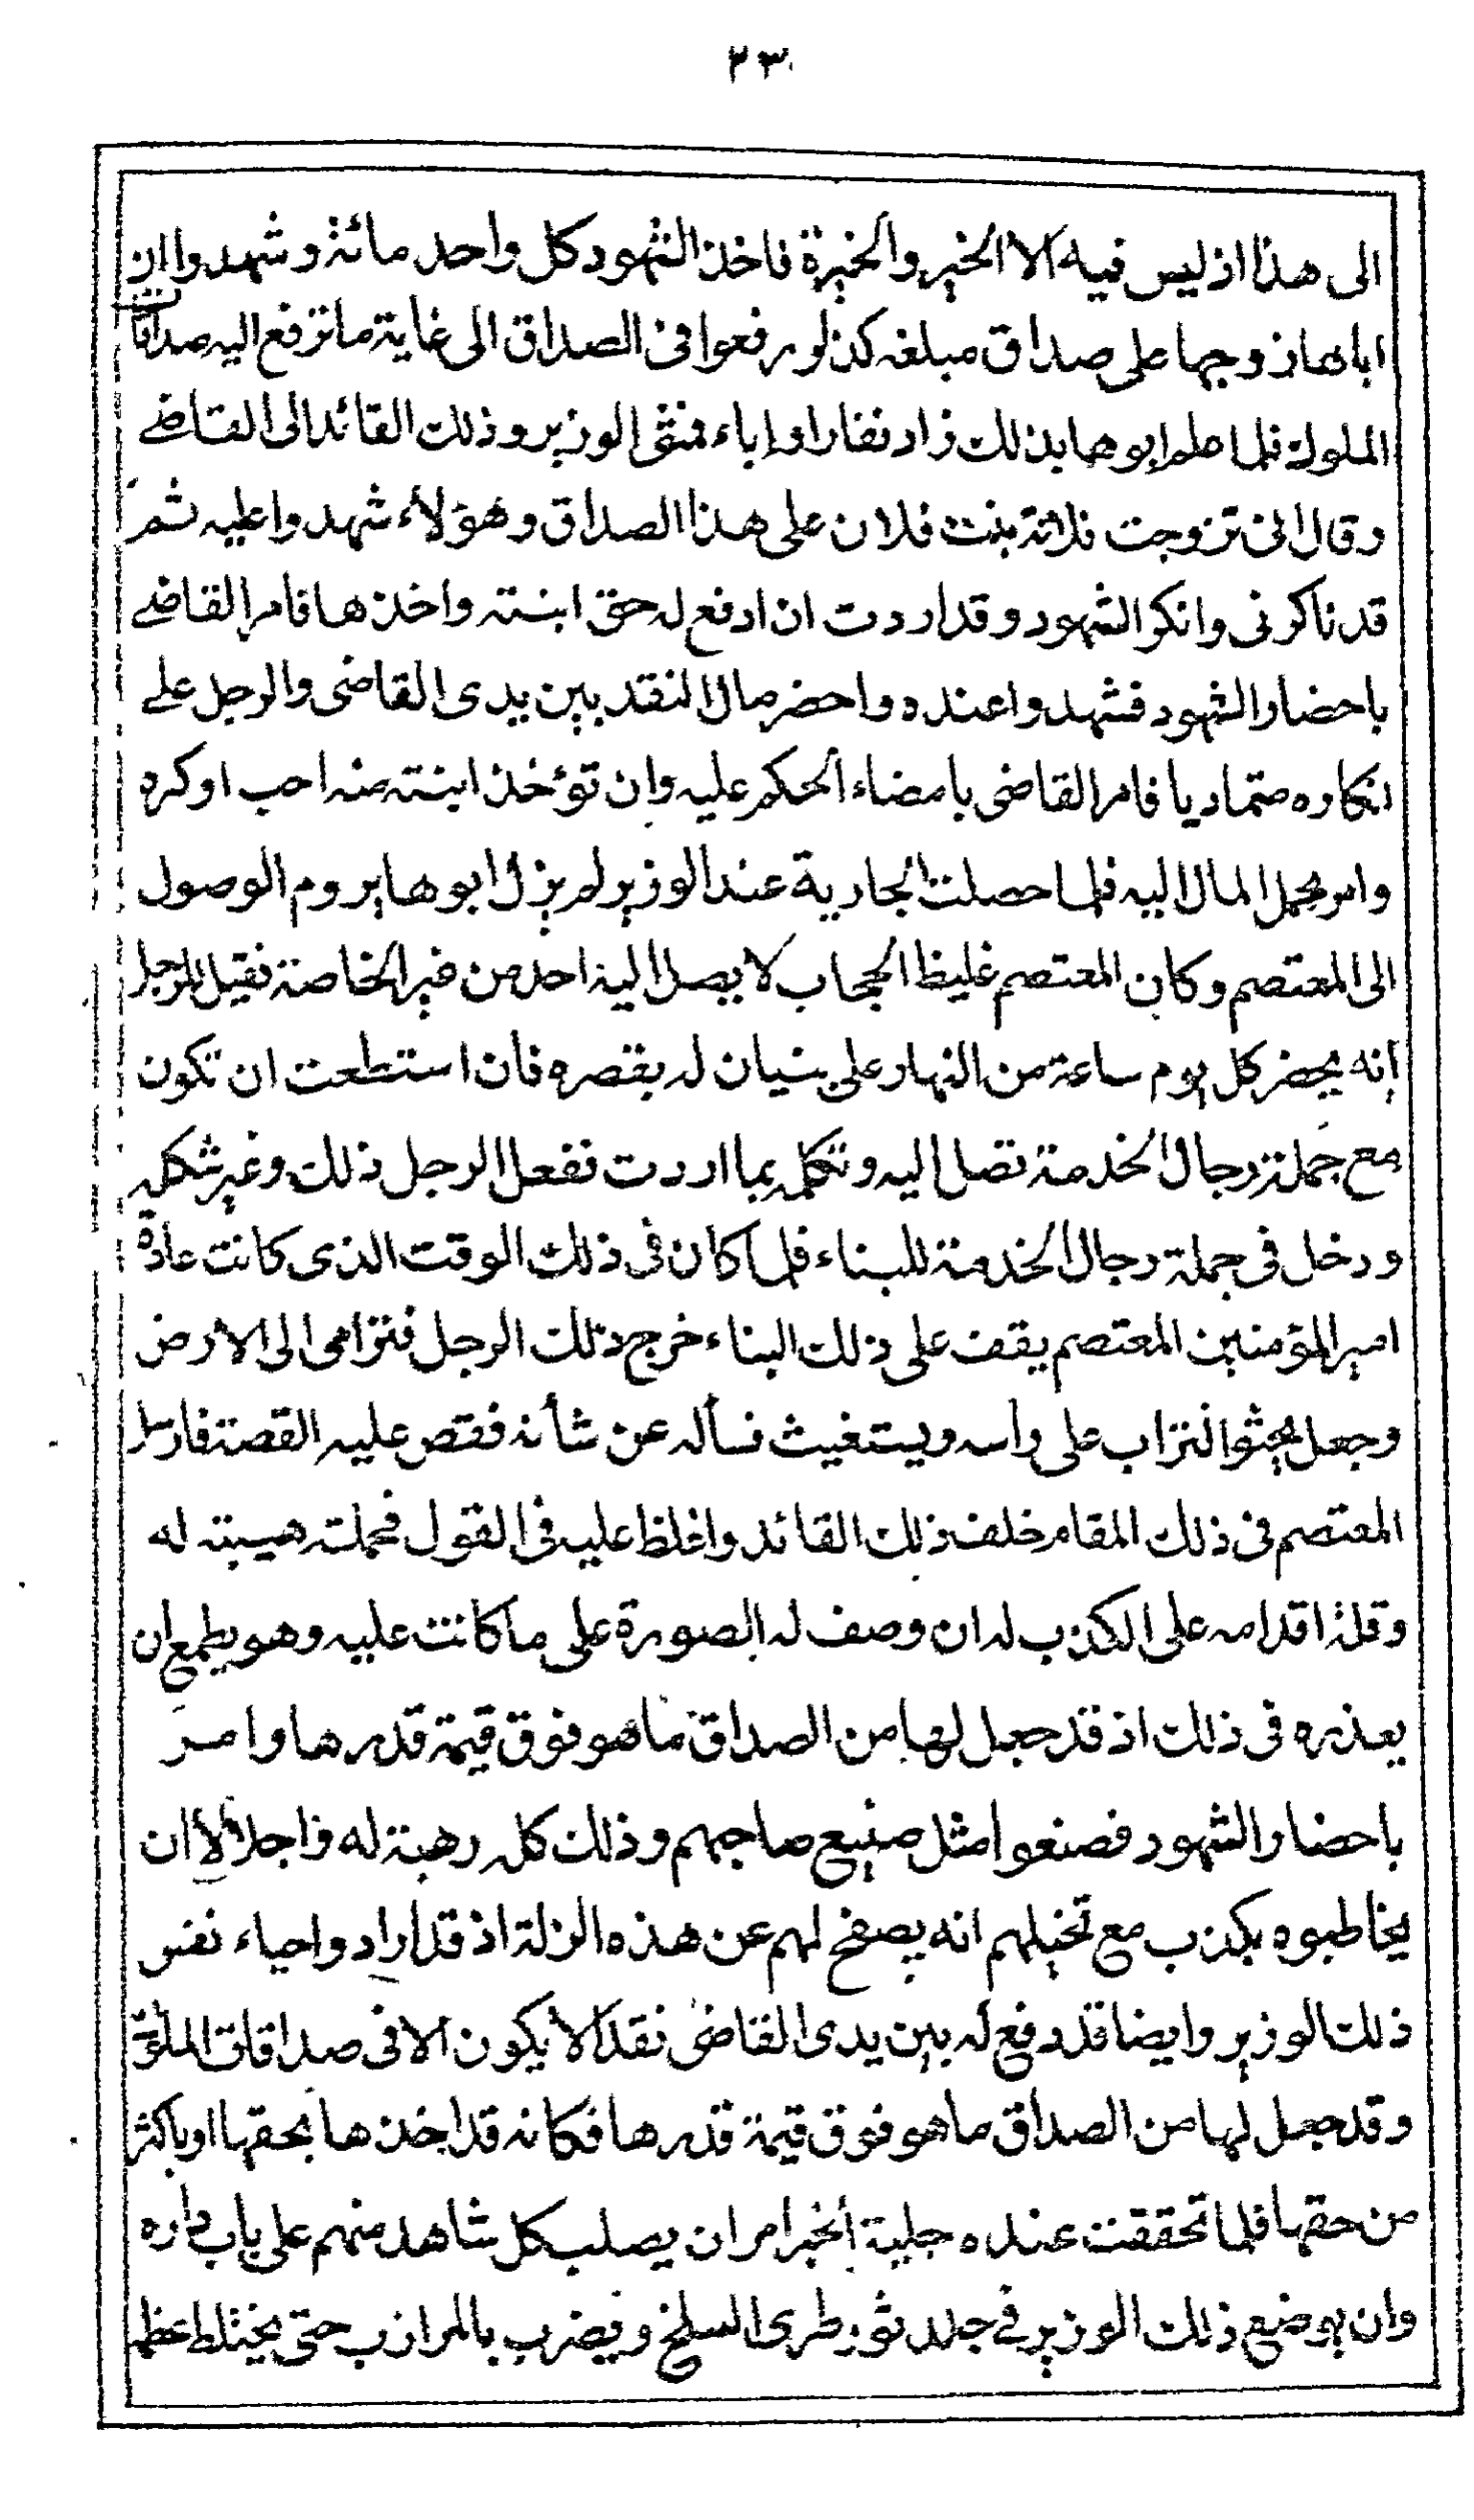 ٢٣
الى هذا اذ ليس فيه الا الخير والخيرة فاخذ الشهود كل واحد مائة وشهدوا ان
اباها زوجها على صداق مبلغه كذا ورفعوا فى الصداق الى غاية ما ترفع اليه صداقات
الملوك فلما علم ابوها بذلك زاد نفارا واباء فمشى الوزير وذلك القائد الى القاضے
وقال انى تزوجت فلانة بنت فلان على هذا الصداق وهؤلاء شهدوا عليه ثم
قد ناكرنى وانكر الشهود وقد اردت ان ادفع له حق ابنته واخذها فامر القاضے
باحضار الشهود فشهدوا عنده واحضر مال النقد بين يدى القاضى والرجل علے
نكاره متماديا فامر القاضى بامضاء الحكم عليه وان تؤخذ ابنته منه احب او كره
وامر بحمل المال اليه فلما حصلت الجارية عند الوزير لم يزل ابوها يروم الوصول
الى المعتصم وكان المعتصم غليظ الحجاب لا يصل اليه احد من غير الخاصة فقيل للرجل
انه يحضر كل يوم ساعة من النهار على بنيان له بقصره فان استطعت ان تكون
مع جملة رجال الخدمة تصل اليه وتكلمه بما اردت ففعل الرجل ذلك وغير شكله
ودخل فى جملة رجال الخدمة للبناء فلما كان فى ذلك الوقت الذى كانت عادة
امير المؤمنين المعتصم يقف على ذلك البناء خرج ذلك الرجل فترامى الى الارض
وجعل يحثو التراب على راسه ويستغيث فسأله عن شأنه فقص عليه القصة فارسل
المعتصم فى ذلك المقام خلف ذلك القائد واغلظ عليه فى القول فحملته هيبته له
وقلة اقدامه على الكذب له ان وصف له الصورة على ما كانت عليه وهو يطمع ان
يعذره فى ذلك اذ قد جعل لها من الصداق ما هو فوق قيمة قدرها وامر
باحضار الشهود فصنعوا مثل صنيع صاحبهم وذلك كله رهبة له واجلالا ان
يخاطبوه بكذب مع تخيلهم انه يصفح لهم عن هذه الزلة اذ قد ارادوا حياء نفس
ذلك الوزير وايضا قد دفع له بين يدى القاضى نقدا لا يكون الا فى صداقات الملوك
وقد جعل لها من الصداق ما هو فوق قيمة قدرها فكانه قد اخذها بحقها او باكثر
من حقها فلما تحققت عنده جلية الخبر امر ان يصلب كل شاهد منهم على باب داره
وان يوضع ذلك الوزير فى جلد ثور طرى السلخ ويضرب بالمرازب حتى يختلط عظمه